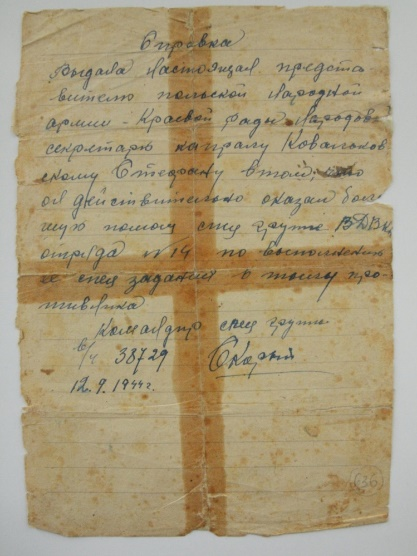 Справка
Выдана настоящая предста
вителю польской народной
армии - Краевой Рады Народов
секретарю капралу Ковальков
скому Стефану в том, что
он действительно оказал боль
шую помощь спец группе
отряда № 14 по выполнению
ее спец заданий в тылу про
тивника
Командир спец группы
в/ч 38729 Скорый
12.9.1944 г.
(636)